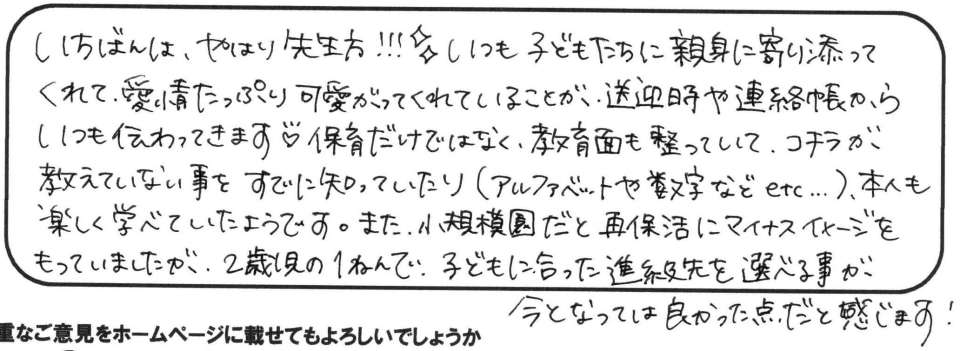 いちばんは、やはり先生方!!!✨いつも子どもたちに親身に寄り添って
くれて、愛情たっぷり可愛がってくれていることが、送迎時や連絡帳から
いつも伝わってきます♡保育だけではなく、教育面も整っていて、コチラが
教えていない事をすでに知っていたり(アルファベットや数字などetc...)、本人も
楽しく学べていたようです。また、小規模園だと再保活にマイナスイメージを
もっていましたが、2歳児の1ねんで、子どもに合った進級先を選べる事が
今となっては良かった点だと感じます!
重なご意見をホームページに載せてもよろしいでしょうか